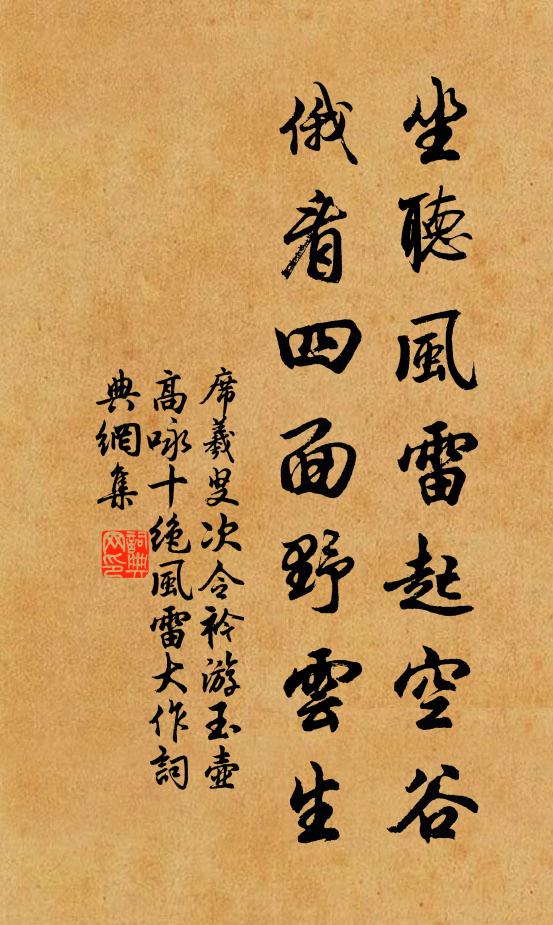 坐聽風雷起空谷
俄看四面野雲生
席羲叟次令衿游玉壺
高咏十絶風雷大作詞
典網集
詞典
网印